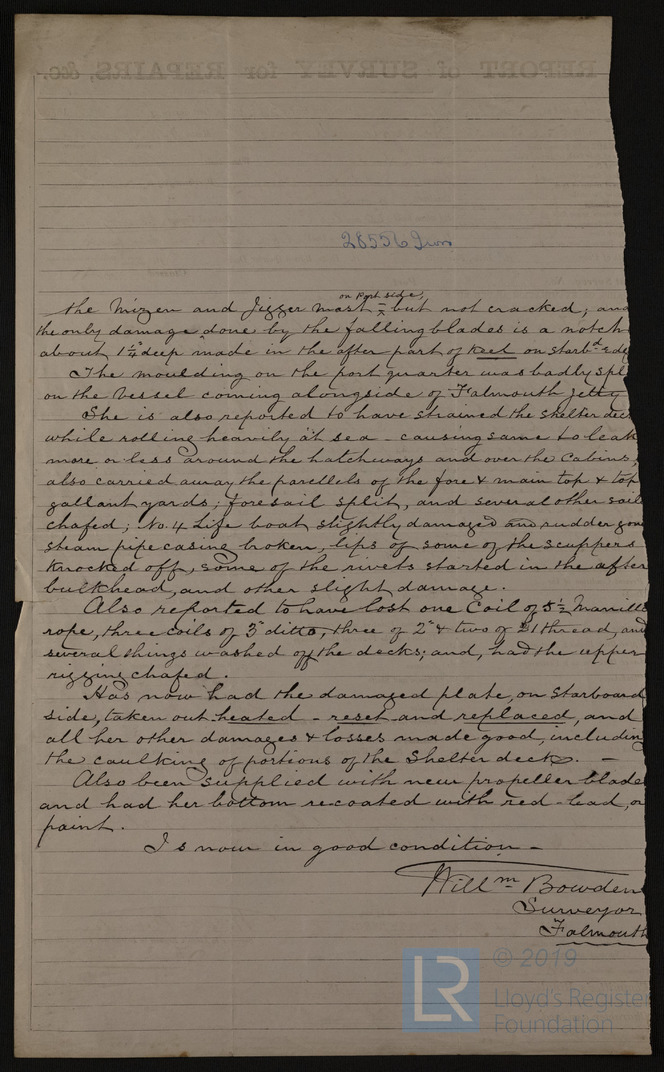 REPORT of SURVEY for REPAIRS, &c.
28556 Iron
on Port side
the Mizen and Jigger mast - but not cracked; and
the only damage done by the falling blades is a notch
about 1¼" deep made in the after part of Keel on starbd side
The moulding on the port quarter was badly spl
on the vessel coming alongside of Falmouth Jetty
She is also reported to have strained the shelter deck
while rolling heavily at sea - causing same to leak
more or less around the hatchways and over the Cabins;
also carried away the parellels of the fore & main top & top
gallant yards; foresail split, and several other sail
chafed; No. 4 Life boat slightly damaged and rudder gone
steam pipe casing broken, lips of some of the scuppers
knocked off, some of the rivets started in the after
bulkhead, and other slight damage.
Also reported to have lost one Coil of 5½ Manilla
rope, three coils of 3" ditto, three of 2" & two of 21 thread, and
several things washed off the decks; and, had the upper
rigging chafed.
Has now had the damaged plate, on starboard
side, taken out heated - reset and replaced, and
all her other damages & losses made good, including
the caulking of portions of the Shelter deck. -
Also been supplied with new propeller blade
and had her bottom recoated with red-lead, or
paint.
Is now in good condition -
Willm Bowden
Surveyor
Falmouth
LR
© 2019
Lloyd's Register
Foundation